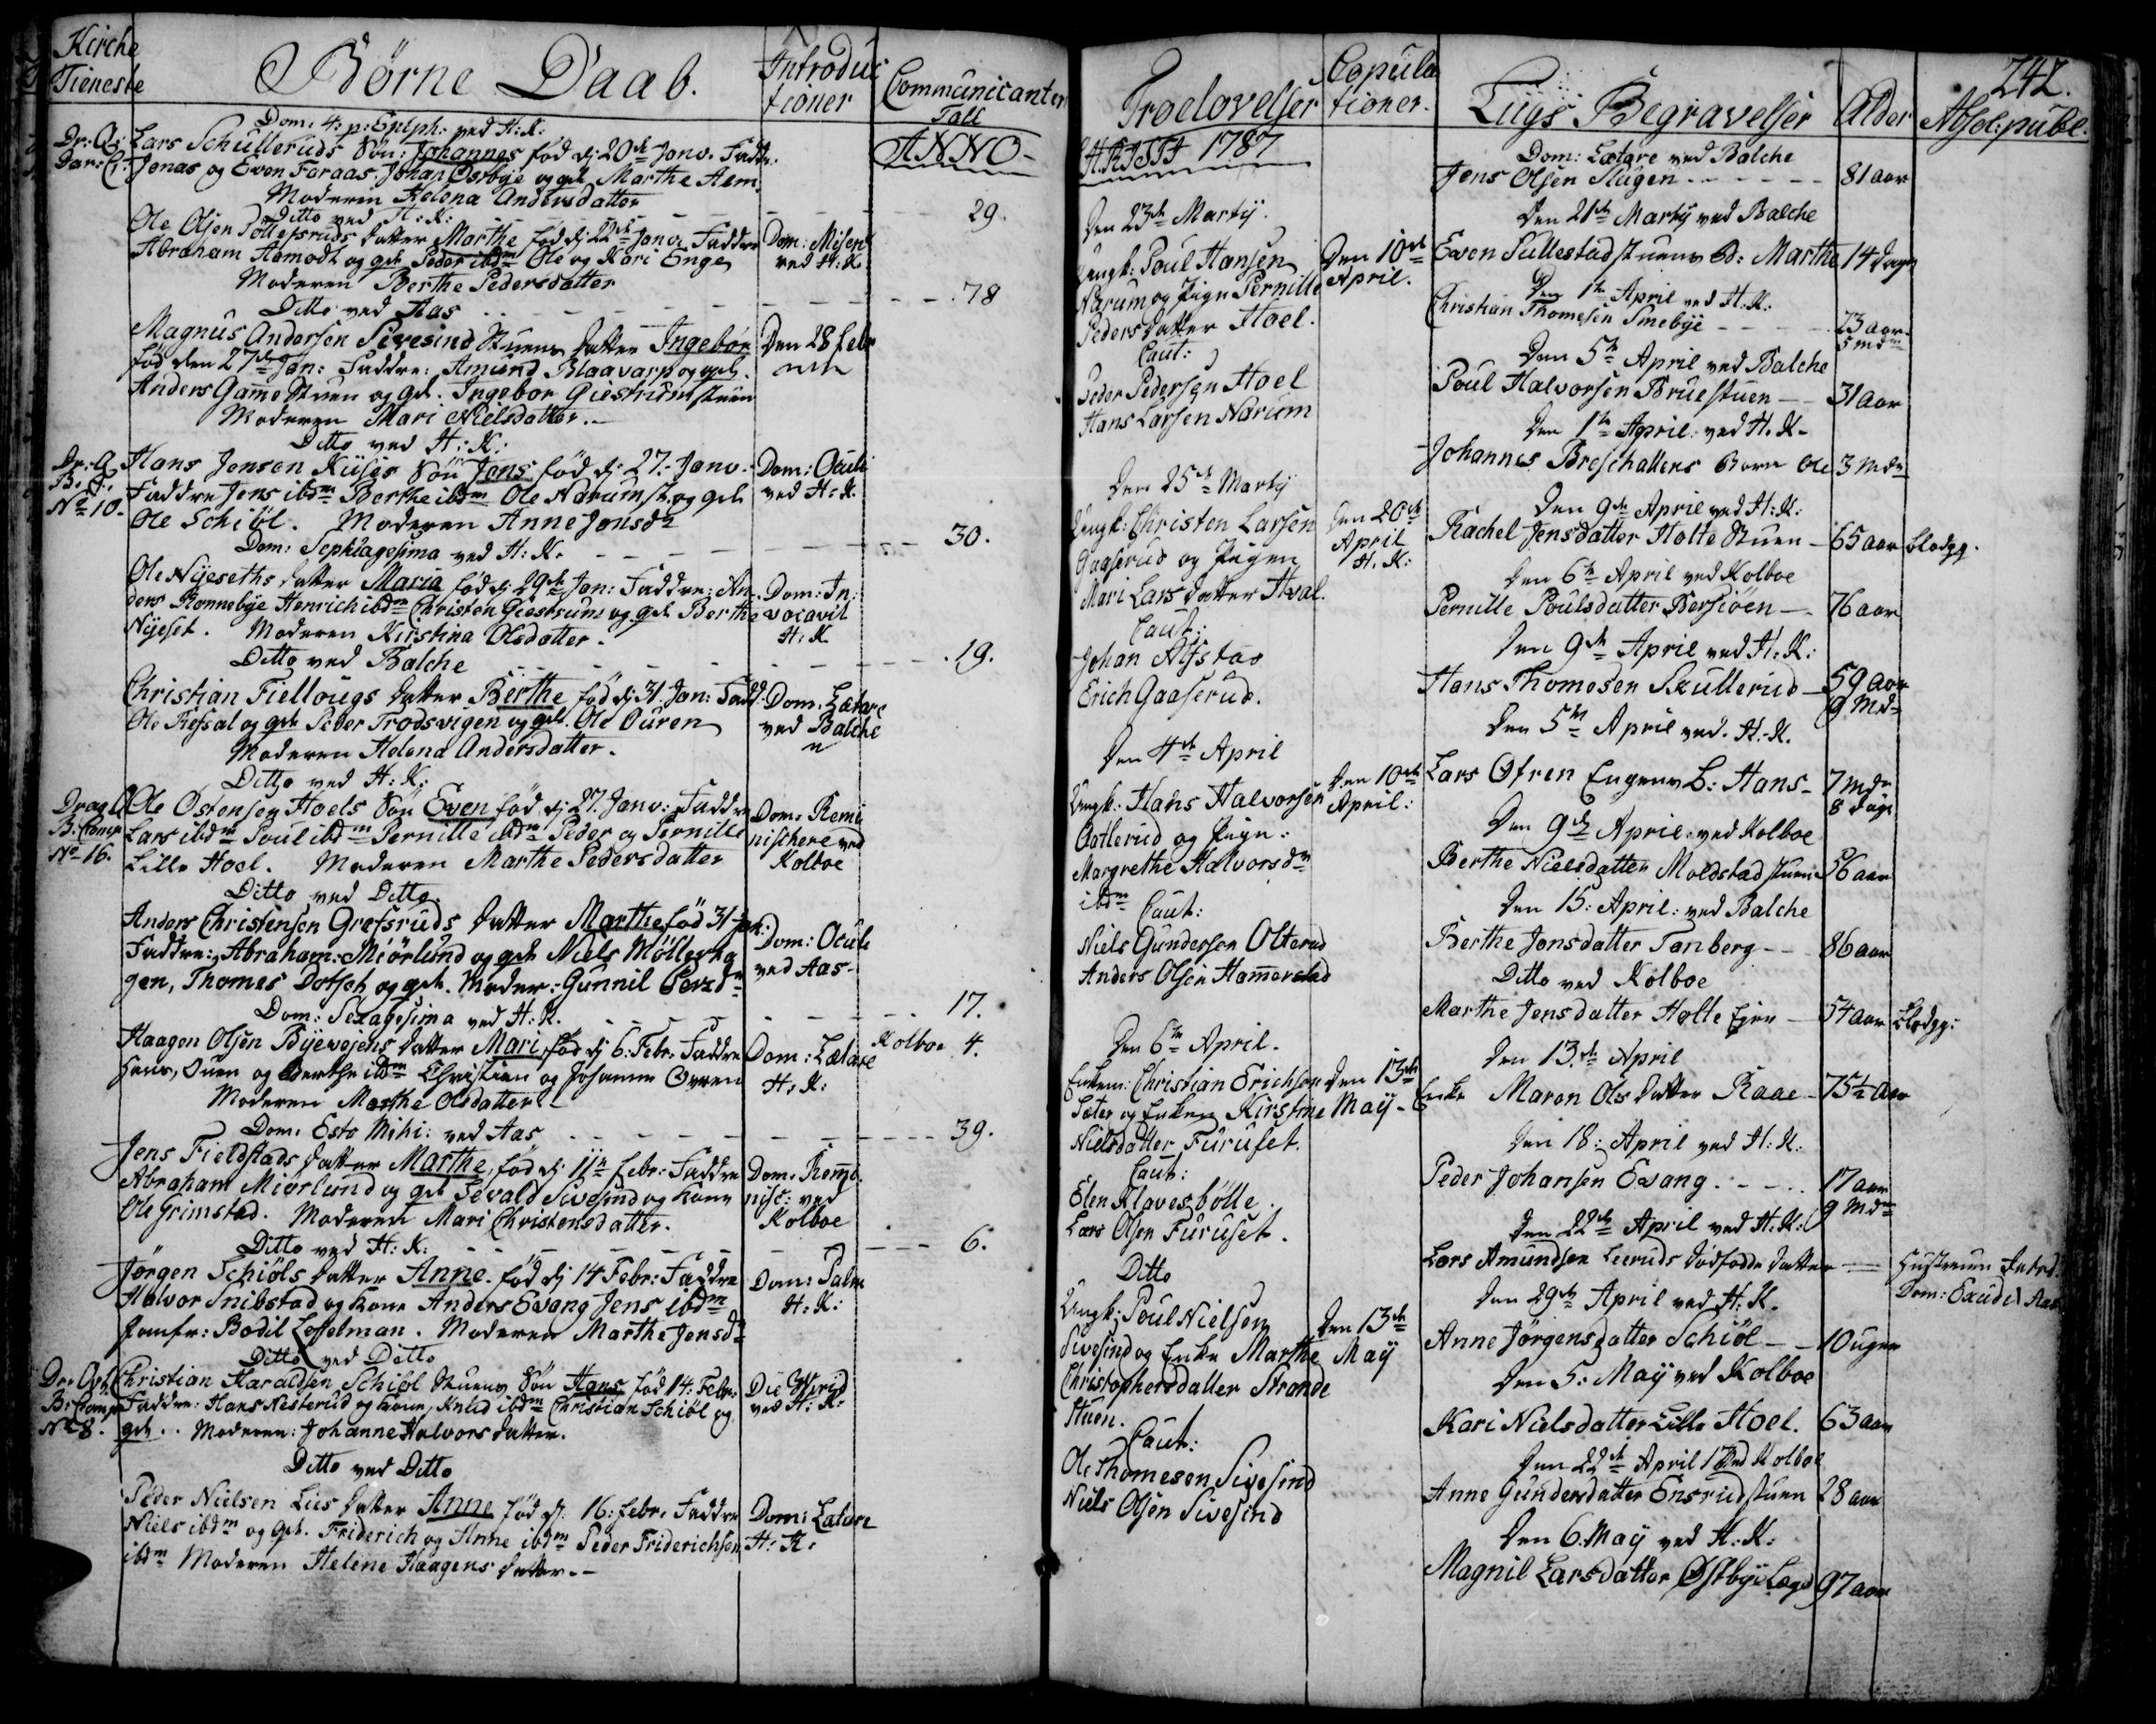 Kirche
Tieneste
Børne Daab.
Introduc
tioner
Communicanter
Tall
ANNO
Dom: 4: p: Epiph: ved H: K:
Lars Schulleruds Søn: Johannes fød d: 20de Janv. Faddr:
Jonas og Even Foraas, Johan Østbye og gdk Marthe Aem.
Moderen Helena Andersdatter
Ditto ved H: K:
29.
Ole Olsen Tollefsruds datter Marthe fød d: 22de Janv. Faddre
Abraham Aamodt og gdk Peder ibdm Ole og Kari Enge
Moderen Berthe Pedersdatter
Dom: Misend
ved H: K.
Ditto ved Aas
78
Magnus Andersen Sivesind Stuens datter Ingebor
fød den 27de Jan: Faddre: Amund Blaavarp og gdk.
Anders Game Stuen og gdk. Ingebor Giestrum stuen
Moderen Mari Nielsdatter.
Den 28 Febr
Ditto ved H: K:
B: C:
No 10.
Hans Jensen Kiises Søn Jens fød d: 27. Janv.
Faddre Jens ibdm Berthe ibdm Ole Narumst. og gdk
Ole Schiøl. Moderen Anne Jonsdr
Dom: Oculi
ved H: K.
Dom: Septuagesima ved H: K.
30.
Ole Nyeseths datter Maria fød d: 29de Jan: Faddre: An
ders Ronnebye Henrich ibdm Christen Giestrum og gdk Berthe
Nyeset. Moderen Kirstina Olsdatter.
Dom: In:
vocavit
H: K
Ditto ved Balche
19.
Christian Fiellougs datter Berthe fød d: 31. Jan: Fadd:
Ole Refsal og gdk Peder Trodsvigen og gdk. Ole Ouren
Moderen Helena Andersdatter.
Dom: Lætare
ved Balche
Ditto ved H: K:
B: Comp
No 16.
Ole Ostensen Hoels Søn Even fød d: 27. Janv: Faddre
Lars ibdm Poul ibdm Pernille ibdm Peder og Pernille
Lille Hoel. Moderen Marthe Pedersdatter
Dom: Remi
niscere ved
Kolboe
Ditto ved Ditto
Anders Christensen Grefsruds datter Marthe fød 31 Jan:
Faddre: Abraham Miörlund og gdk Niels Möllerha
gen, Thomes Dotset og gdk. Moder: Gunnil
Dom: Oculi
ved Aas.
Dom: Sexagesima ved H: K.
17.
Haagen Olsen Byevogens datter Mari fød d: 6: Febr. Faddre
Hans, Ouen og Berthe ibdm Christian og Johanne Ovren
Moderen Marthe Olsdatter
Dom: Lætare
H: K:
Kolboe 4.
Dom. Esto Mihi: ved Aas
39.
Jens Fieldstads datter Marthe, fød d: 11te Febr: Faddre
Abraham Miörlund og gdk Sevald Sivesind og Kone
Ole Grimstad. Moderen Mari Christensdatter.
Dom: Remi
nisc: ved
Kolboe
Ditto ved H: K:
6.
Jørgen Schiöls datter Anne. fød d: 14 Febr: Faddre
Halvor Snibstad og Kone Anders Evang Jens ibdm
Jomfr: Bodil Loffelman. Moderen Marthe Jensdr
Dom: Palm
H: K:
Ditto ved Ditto
B: Comp
No 8.
Christian Haraldsen Schiöl Stuens Søn Hans fød 14: Febr:
Faddre: Hans Nesterud og Kone, Knud ibdm Christian Schiöl og
gdk. Moderen: Johanne Halvors datter.
Die Virid
ved H: K:
Ditto ved Ditto
Peder Nielsen Lies datter Anne fød d: 16: Febr. Faddre
Niels ibdm og Gdk. Friderich og Anne ibdm Peder Friderichsen
ibdm Moderen Helene Haagens datter.
Dom: Lætare
H: K.
Troelovelser
Copula
tioner.
Liigs Begravelser
Alder
Absol: publ.
242.
CHRISTI 1787
Den 23de Martij.
Ungk: Poul Hansen
Narum og Pigen Pernille
Pedersdatter Hoel.
Caut:
Peder Pedersen Hoel
Hans Larsen Narum
Den 10de
April.
Den 25de Martij
Ungk: Christen Larsen
Gaaserud og Pigen
Mari Lars datter Hval.
Caut:
Johan Alfstad
Erich Gaaserud.
Den 20de
April
H. K:
Den 4de April
Ungk. Hans Halvorsen
Oatlerud og Pign:
Margrethe Halvorsdr
ibdm
Caut:
Niels Gundersen Olterud
Anders Olsen Hamerstad
Den 10de
April:
Den 6te April.
Enkem: Christian Erichsen
Sæter og Enken Kirstine
Nielsdatter Furuset.
Caut:
Elen Klavesbölle.
Lars Olsen Furuset.
Den 13de
May
Ditto
Ungk: Poul Nielsen
Sivesind og Enke Marthe
Christophersdatter Strande
Stuen.
Caut:
Ole Thomesen Sivesind
Niels Olsen Sivesind
Den 13de
May
Dom: Lætare ved Balche
Jens Olsen Slugen 81 aar
Den 21de Martij ved Balche
Even Sullestad stuens B: Marthe 14 dage
Den 1te April ved H. K.
Christian Thomesen Smebye 23 aar
5 mdr
Den 5te April ved Balche
Poul Halvorsen Bruestuen 31 aar
Den 1te April. ved H. K.
Johannes Breschallens Barn Ole 3 mdr
Den 9de April ved H: K:
Rachel Jensdatter Holte Stuen 65 aar Blodgg.
Den 6te April ved Kolboe
Pernille Poulsdatter Bersiöen 76 aar
Den 9de April ved H: K:
Hans Thomesen Skullerud 59 aar
9 Mdr
Den 5te April ved. H. K.
Lars Ofren Engens B: Hans 7 mdr
8 dage
Den 9de April: ved Kolboe
Berthe Nielsdatter Moldstad stuen 56 aar
Den 15: April: ved Balche
Berthe Jonsdatter Tanberg 86 aar
Ditto ved Kolboe
Marthe Jensdatter Holte Eien 54 aar Blodgg:
Den 13de April
Enke Maren Ols datter Raae 75½ aar
Den 18: April ved H: K:
Peder Johansen Evang 17 aar
9 Mdr
Den 22de April ved H: K:
Lars Amundsen Leeruds dødfødde datter Hustruen Introd.
Dom: Exaudi Aas
Den 29de April ved H: K.
Anne Jörgensdatter Schiöl 10 uger
Den 5: May ved Kolboe
Kari Nielsdatter Lille Hoel. 63 aar
Den 22de April ved Kolboe
Anne Gundersdatter Ensrud stuen 28 aar
Den 6. May ved H: K:
Magnil Larsdatter Østbye Lægd 97 aar